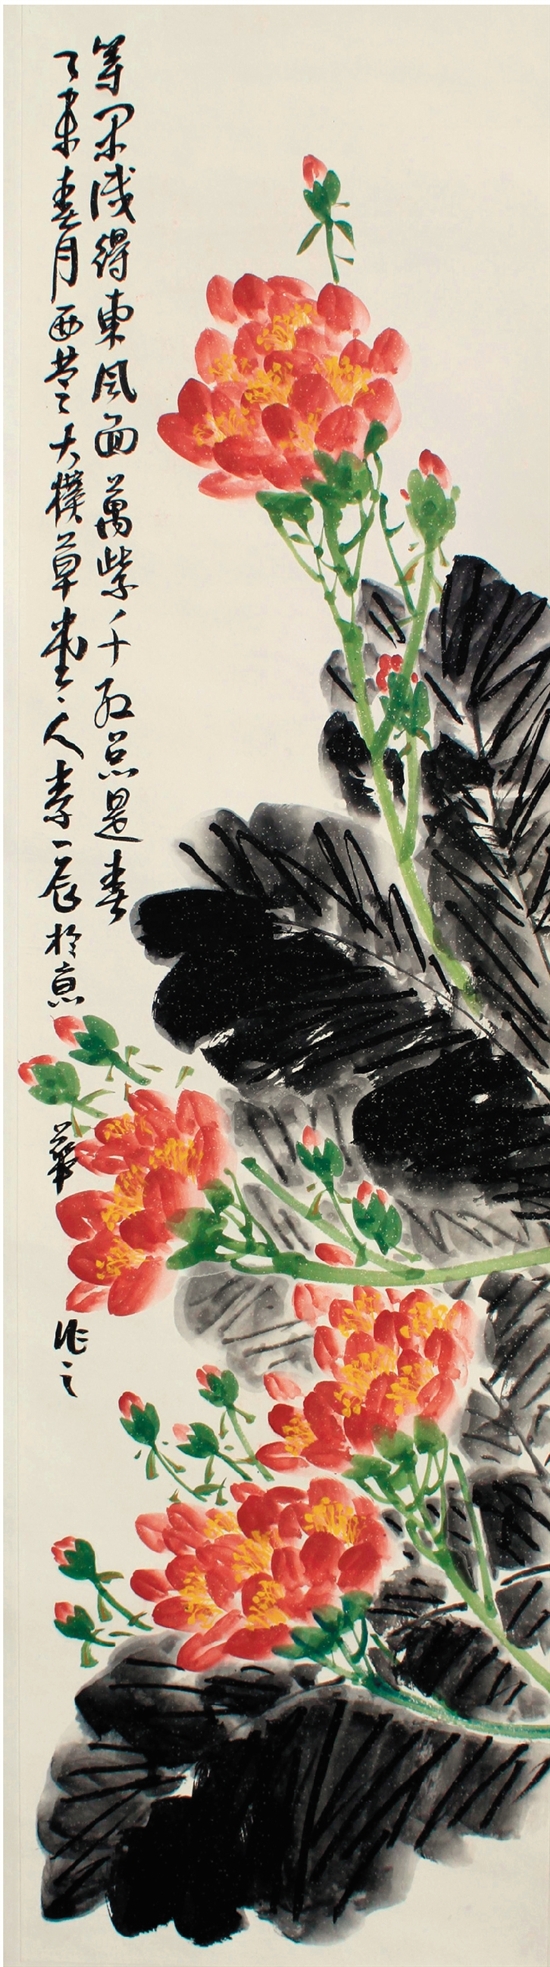 等閑識得東風面萬紫千紅總是春
乙未春月西大樸草堂人一辰於京華作之